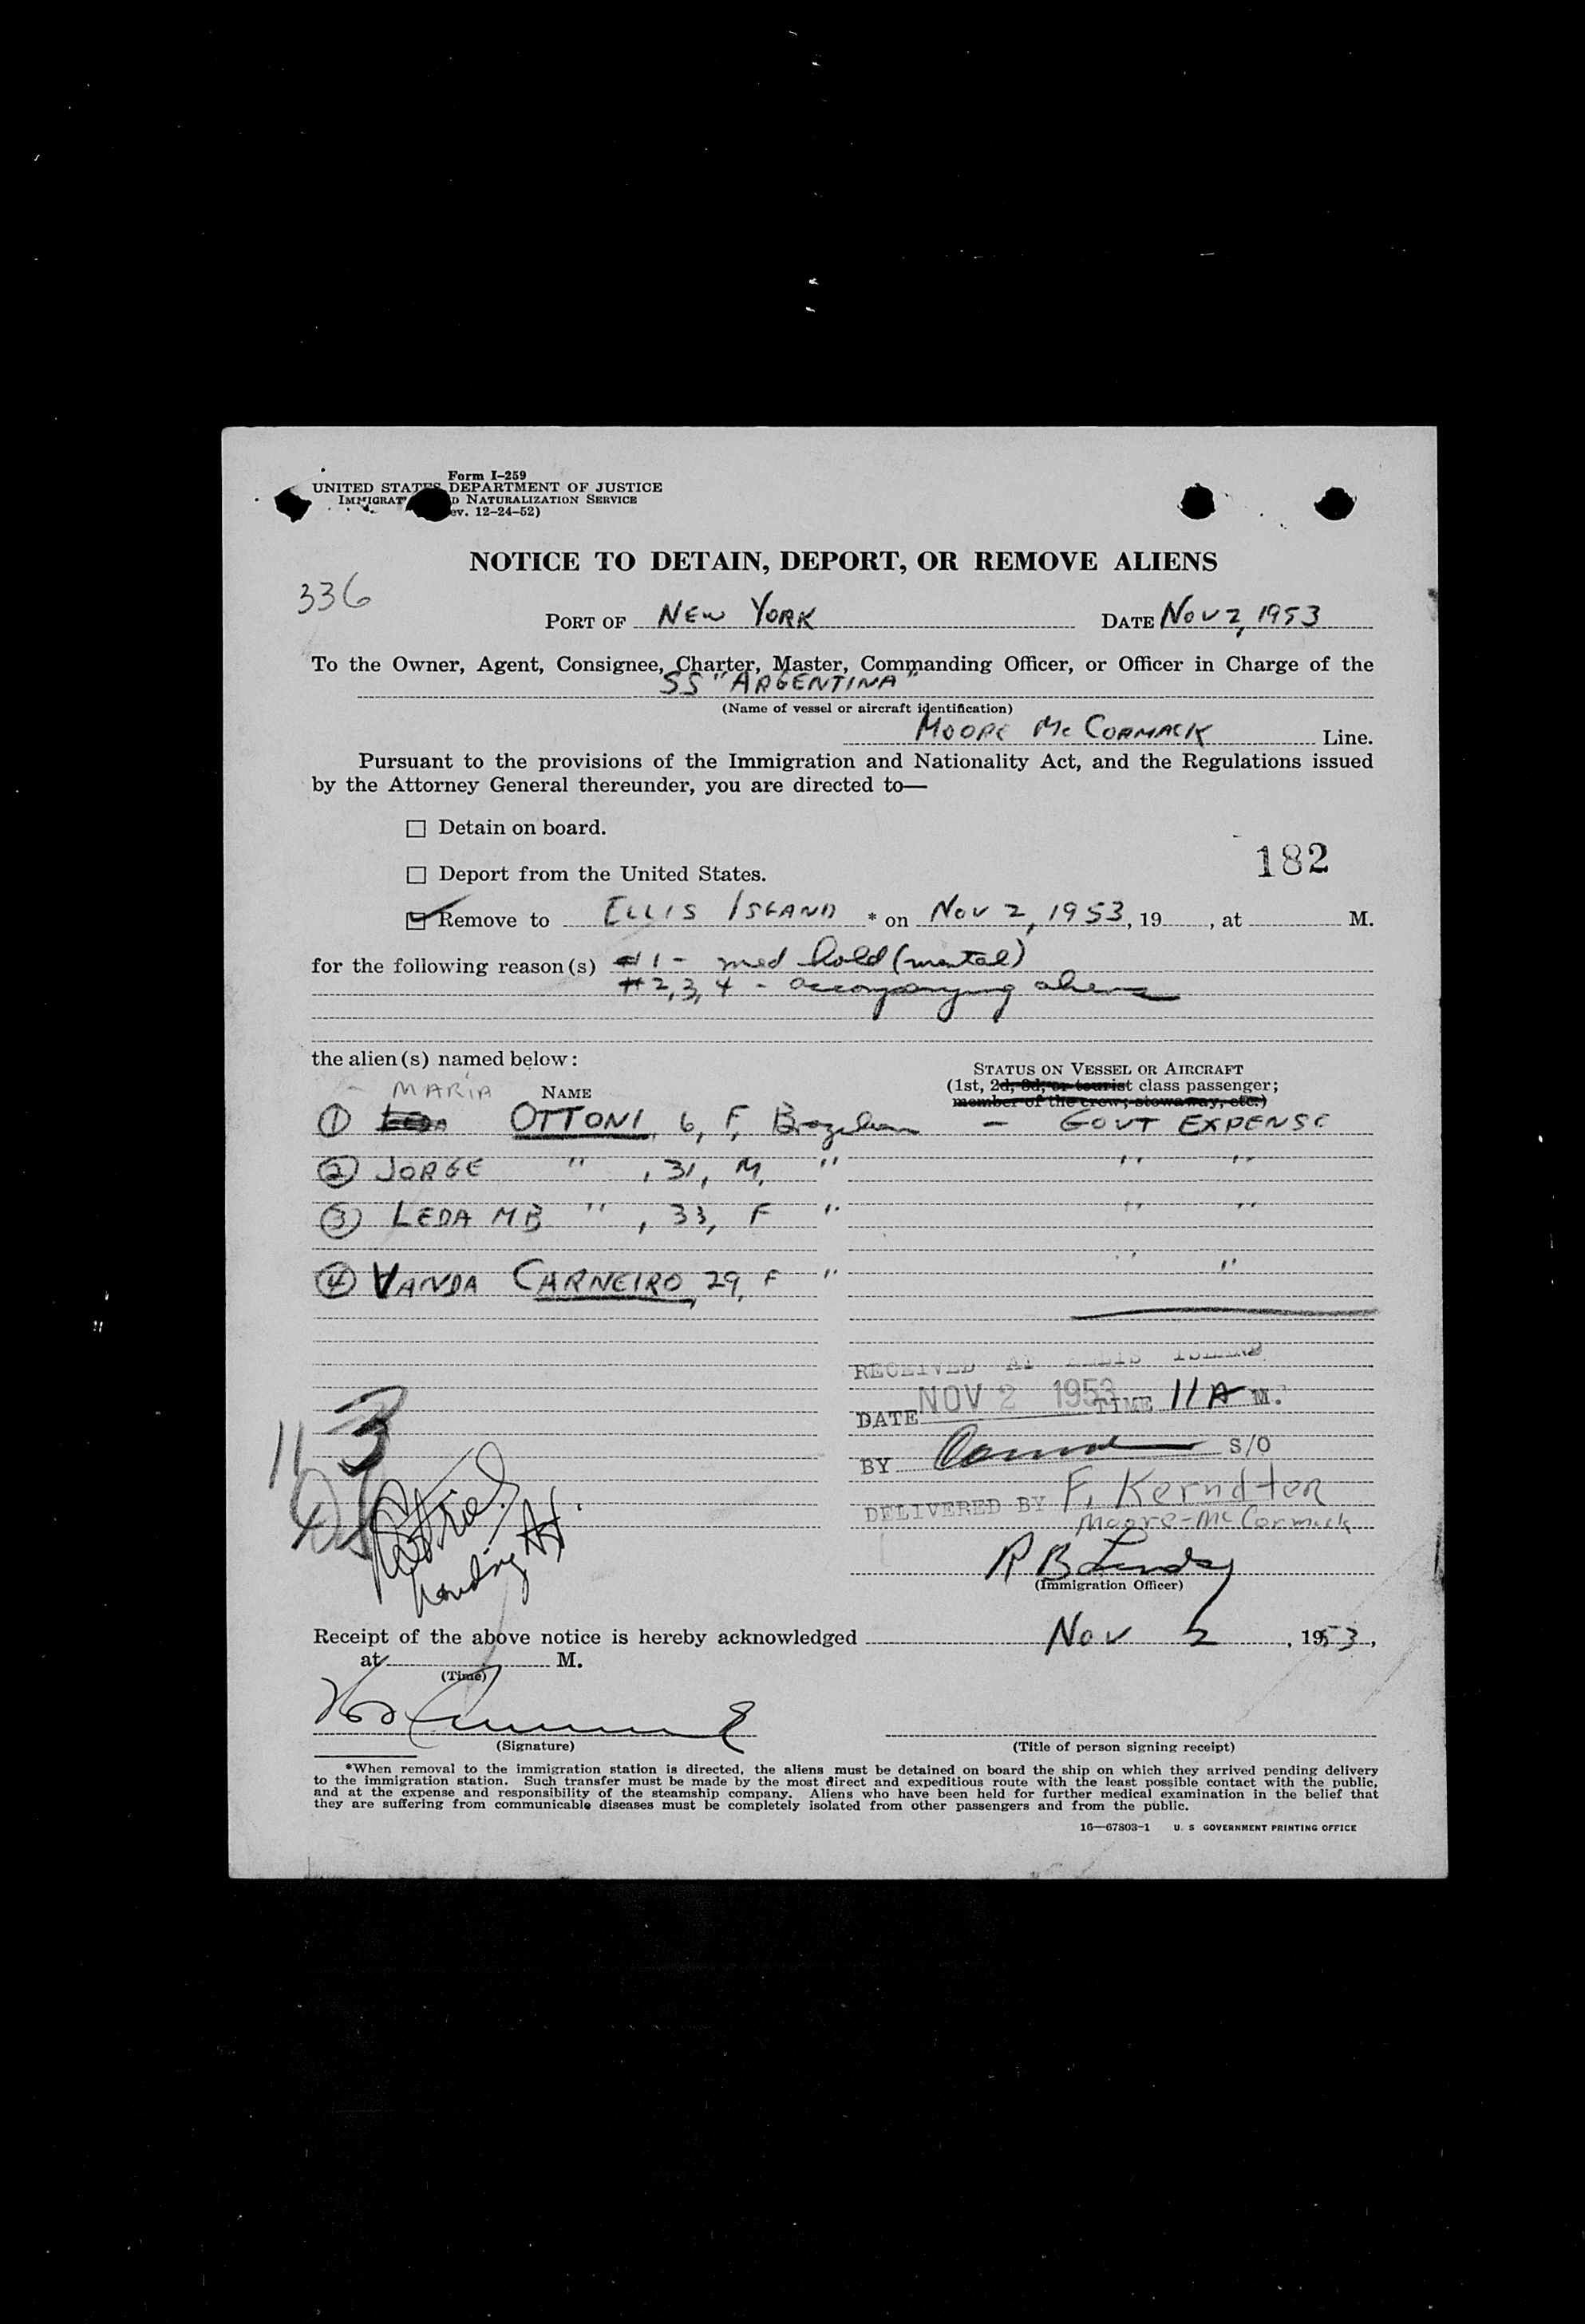 Form I-259
UNITED STATES DEPARTMENT OF JUSTICE
IMMIGRAT D NATURALIZATION SERVICE
ev. 12-24-52)
NOTICE TO DETAIN, DEPORT, OR REMOVE ALIENS
336
PORT OF NEW YORK DATE NOV 2, 1953
To the Owner, Agent, Consignee, Charter, Master, Commanding Officer, or Officer in Charge of the
SS "ARGENTINA"
(Name of vessel or aircraft identification)
MOORE Mc CORMACK Line.
Pursuant to the provisions of the Immigration and Nationality Act, and the Regulations issued
by the Attorney General thereunder, you are directed to—
☐ Detain on board.
182
☐ Deport from the United States.
☑ Remove to ELLIS ISLAND * on NOV 2, 1953, 19 , at M.
for the following reason(s) #1 - med hold (mental)
#2, 3, 4 - accompanying aliens
the alien(s) named below:
STATUS ON VESSEL OR AIRCRAFT
MARIA NAME (1st, 2d, 3d, or tourist class passenger;
member of the crew; stowaway, etc.)
① OTTONI, 6, F, Brazilian - GOVT EXPENSE
② JORGE " , 31, M, " " "
③ LEDA MB " , 33, F " " "
④ VANDA CARNEIRO, 29, F " " "
RECEIVED AT ELLIS ISLAND
DATE NOV 2 1953 TIME 11 A M.
11 3
BY S/O
DELIVERED BY F. Kerndter
Moore-McCormack
R B
(Immigration Officer)
Receipt of the above notice is hereby acknowledged Nov 2, 1953,
at M.
(Time)
(Signature) (Title of person signing receipt)
*When removal to the immigration station is directed, the aliens must be detained on board the ship on which they arrived pending delivery
to the immigration station. Such transfer must be made by the most direct and expeditious route with the least possible contact with the public,
and at the expense and responsibility of the steamship company. Aliens who have been held for further medical examination in the belief that
they are suffering from communicable diseases must be completely isolated from other passengers and from the public.
16—67803-1 U. S GOVERNMENT PRINTING OFFICE